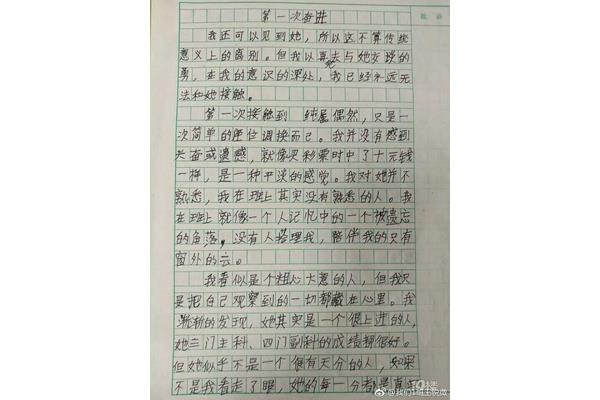 第一次奋进
我还可以见到她，所以这不算传统
意义上的离别。但我以失去与她交谈的
勇，在我的意识的深处，我已经永远无
法和她接触。
第一次接触到 纯属偶然，只是一
次简单的座位调换而已。我并没有感到
兴奋或遗憾，就像买彩票时中了十元钱
一样，是一种平淡的感觉。我对她并不
熟悉，我在班上其实没有熟悉的人。我
在班上就像一个人记忆中的一个被遗忘
的角落，没有人搭理我，陪伴我的只有
窗外的云。
我看似是个粗心大意的人，但我只
是把自己观察到的一切都藏在心里。我
渐渐的发现，她其实是一个很上进的人，
她三门主科、四门副科的成绩都很好。
但她似乎不是一个很有天分的人，如果
不是我看走了眼，她的每一分都是真